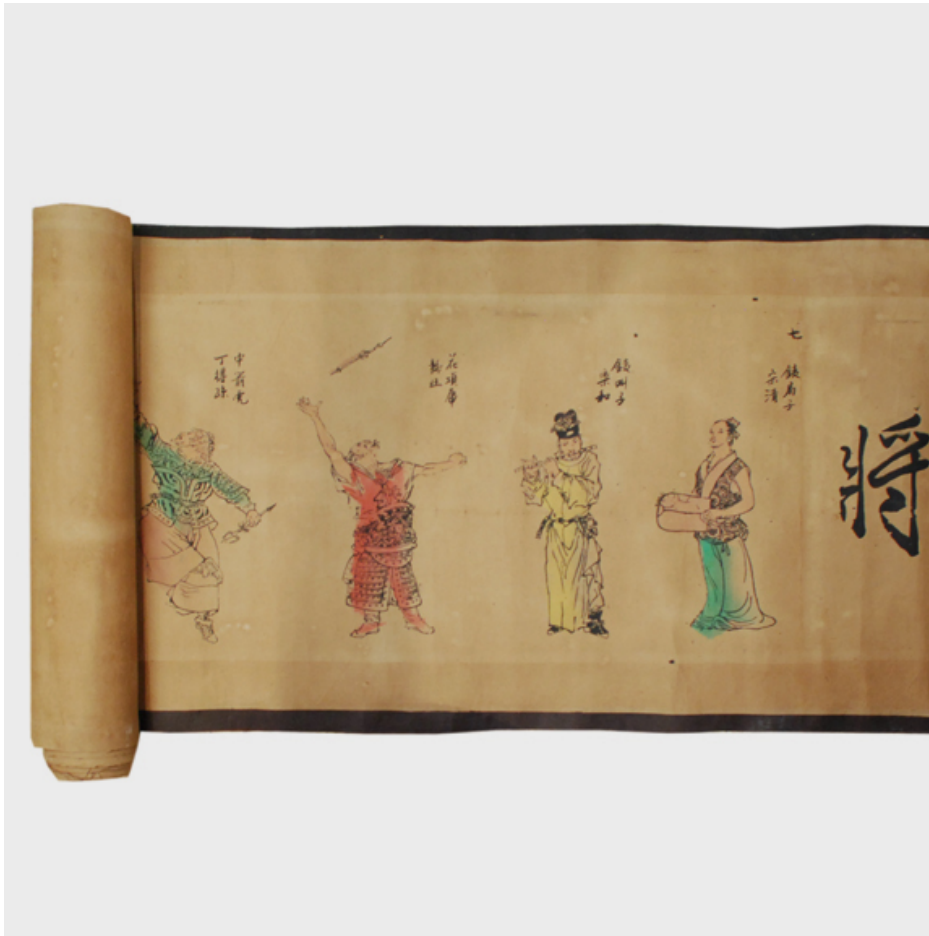 將
七
鐵扇子
宋清
鐵叫子
樂和
花項虎
龔旺
中箭虎
丁得孫